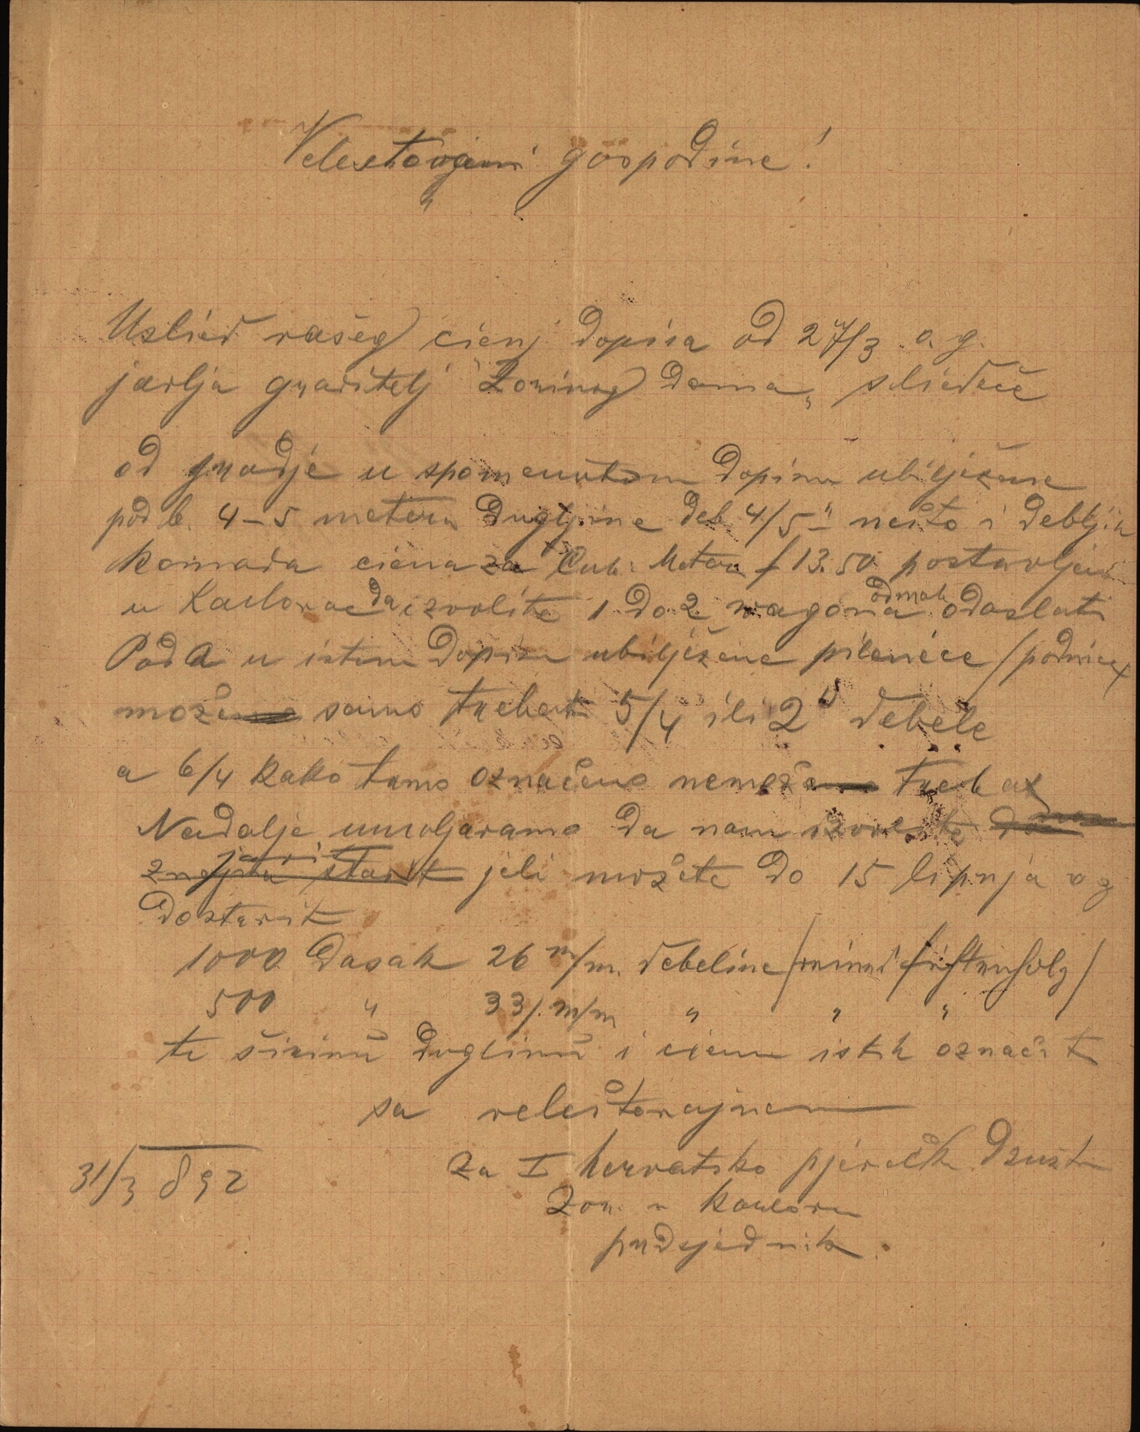 Veleštovani gospodine!
Uslied vašeg cienj dopisa od 27/3 o. g.
javlja graditelj Zorinog doma, sliedeće
od gradje u spomenutom dopisu ubilježene
pod b. 4-5 metera dugljine deb. 4/5" nešto i deblji
komada ciena za Cub: Metar f 13.50 postavljeno
u Karlovac da izvolite 1 do 2 vagona odmah odaslati
Pod a u istom dopisu ubilježene pilenice / podnice
može samo trebati 5/4 ili 2" debele
a 6/4 kako tamo označeno nemože trebat
Nadalje umoljavamo da nam izvolite
javit jeli možete do 15 lipnja o g
dostavit
1000 dasak 26 m/m. debeline /
500 " 33/. m/m " " "
te širinu duglinu i cienu istih označit
sa veleštovanjem
Za I hervatsko pjevačk. Družtv
31/3 892
Zor. u Karlovcu
predsjednik.